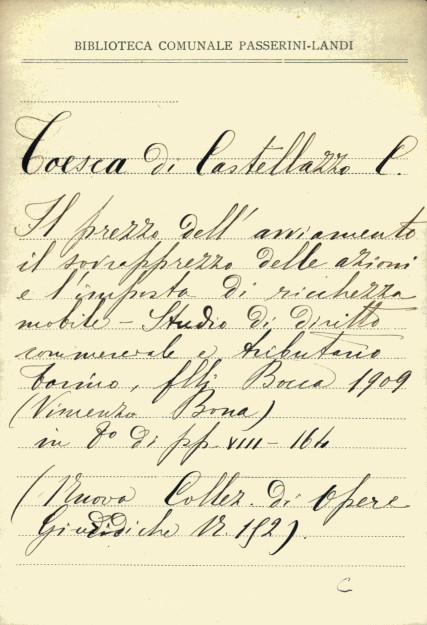 BIBLIOTECA COMUNALE PASSERINI-LANDI
Toesca di Castellazzo C.
Il prezzo dell'avviamento
il sovrapprezzo delle azioni
e l'imposta di ricchezza
mobile - Studio di diritto
commerciale e tributario
Torino, flli Bocca 1909
(Vincenzo Bona)
in 8º di pp. VIII - 164
(Nuova Collez. di Opere
Giuridiche N. 152).
C